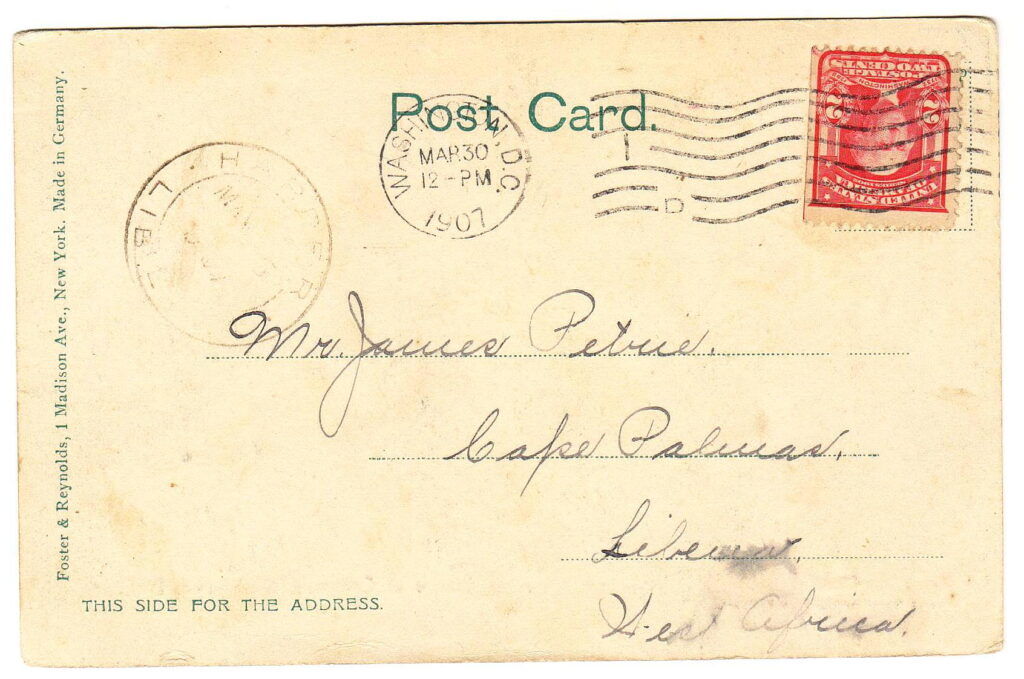 Post Card.
WASHINGTON, D.C.
MAR 30
12-PM
1907
D
HARPER
LIB
MAY
Foster & Reynolds, 1 Madison Ave., New York. Made in Germany.
UNITED STATES OF AMERICA
POSTAGE
TWO CENTS
2 2
Mr. James Petrie.
Cape Palmas,
Liberia,
West Africa.
THIS SIDE FOR THE ADDRESS.